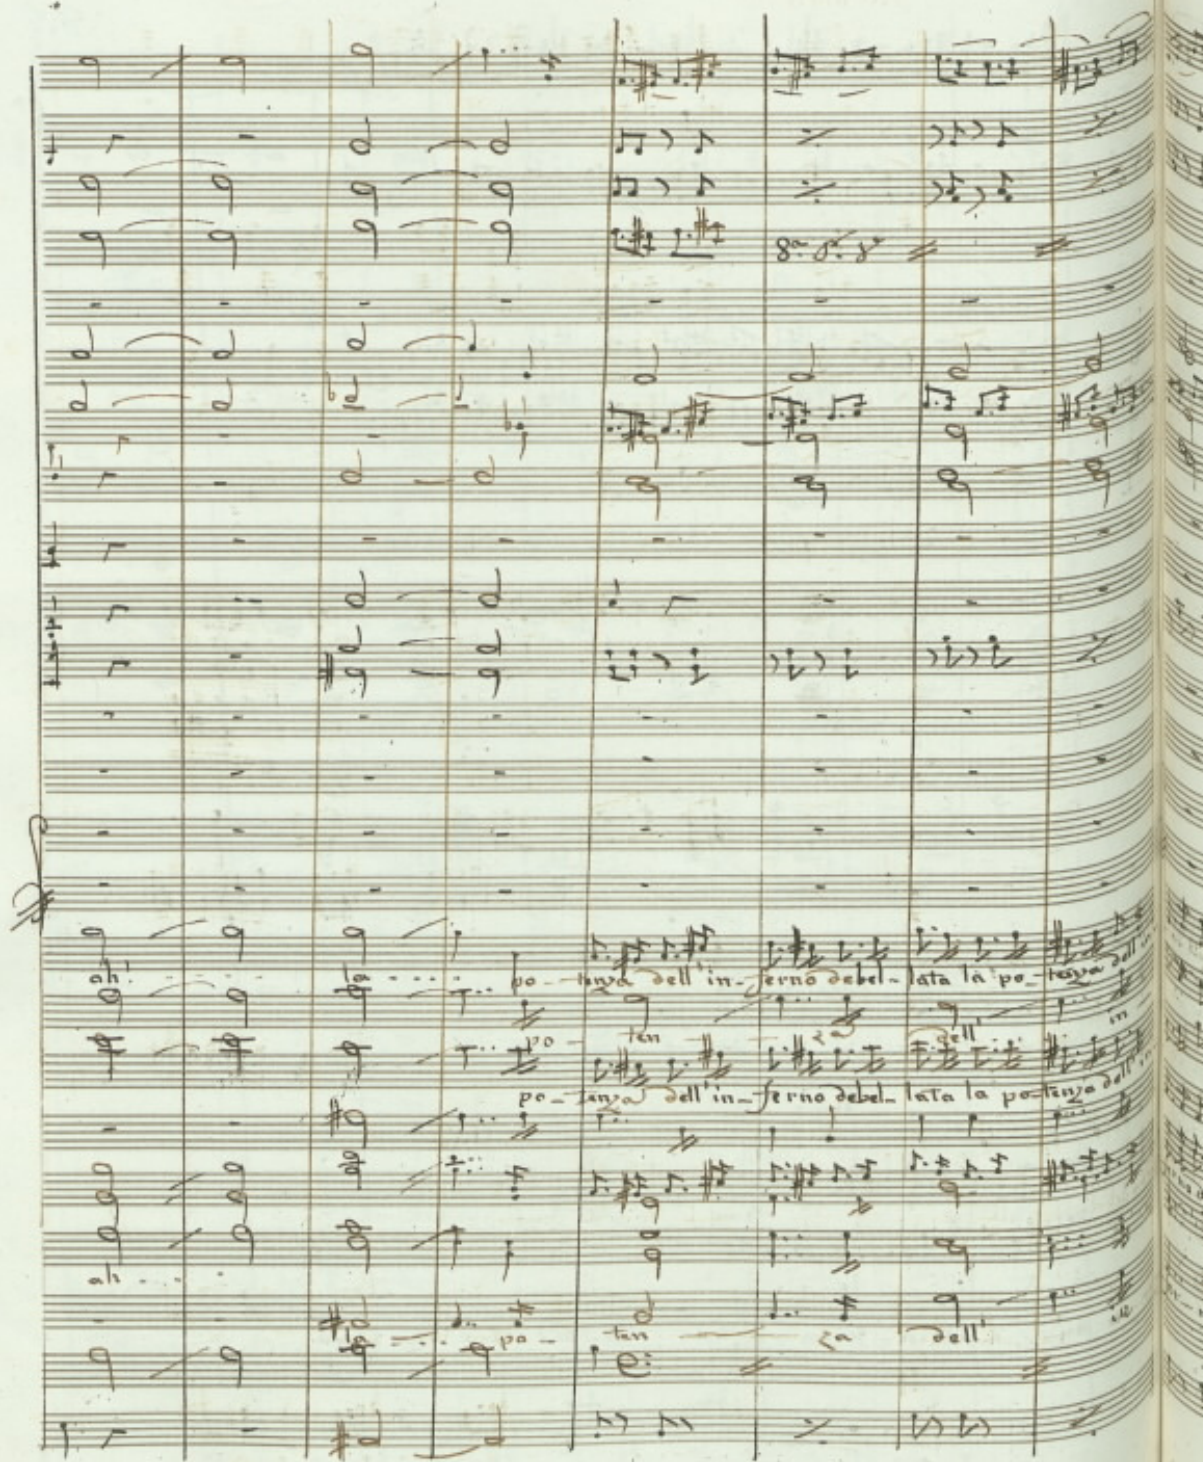 8ª 8ª 8ª
ah! - - - - la - - - - po - tenza dell'in - ferno debel - lata la po - tenza dell'
po - ten - za dell' in
po - tenza dell'in - ferno debel - lata la po - tenza dell'in
ah - - - -
la - - - - po - ten - za dell' in